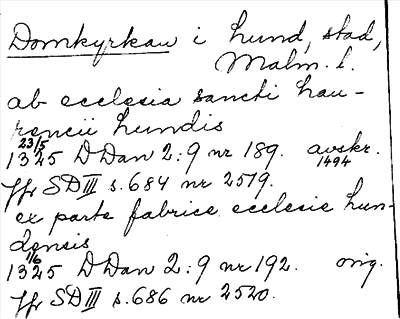 Domkyrkan i Lund, stad,
Malm. l.
ab ecclesia sancti Lau-
rencii Lundis
23/5
1325 D Dan 2:9 nr 189. avskr.
1494
Jfr SD III s. 684 nr 2519.
ex parte fabrice ecclesie Lun-
densis
1/6
1325 D Dan 2:9 nr 192. orig.
Jfr SD III s. 686 nr 2520.